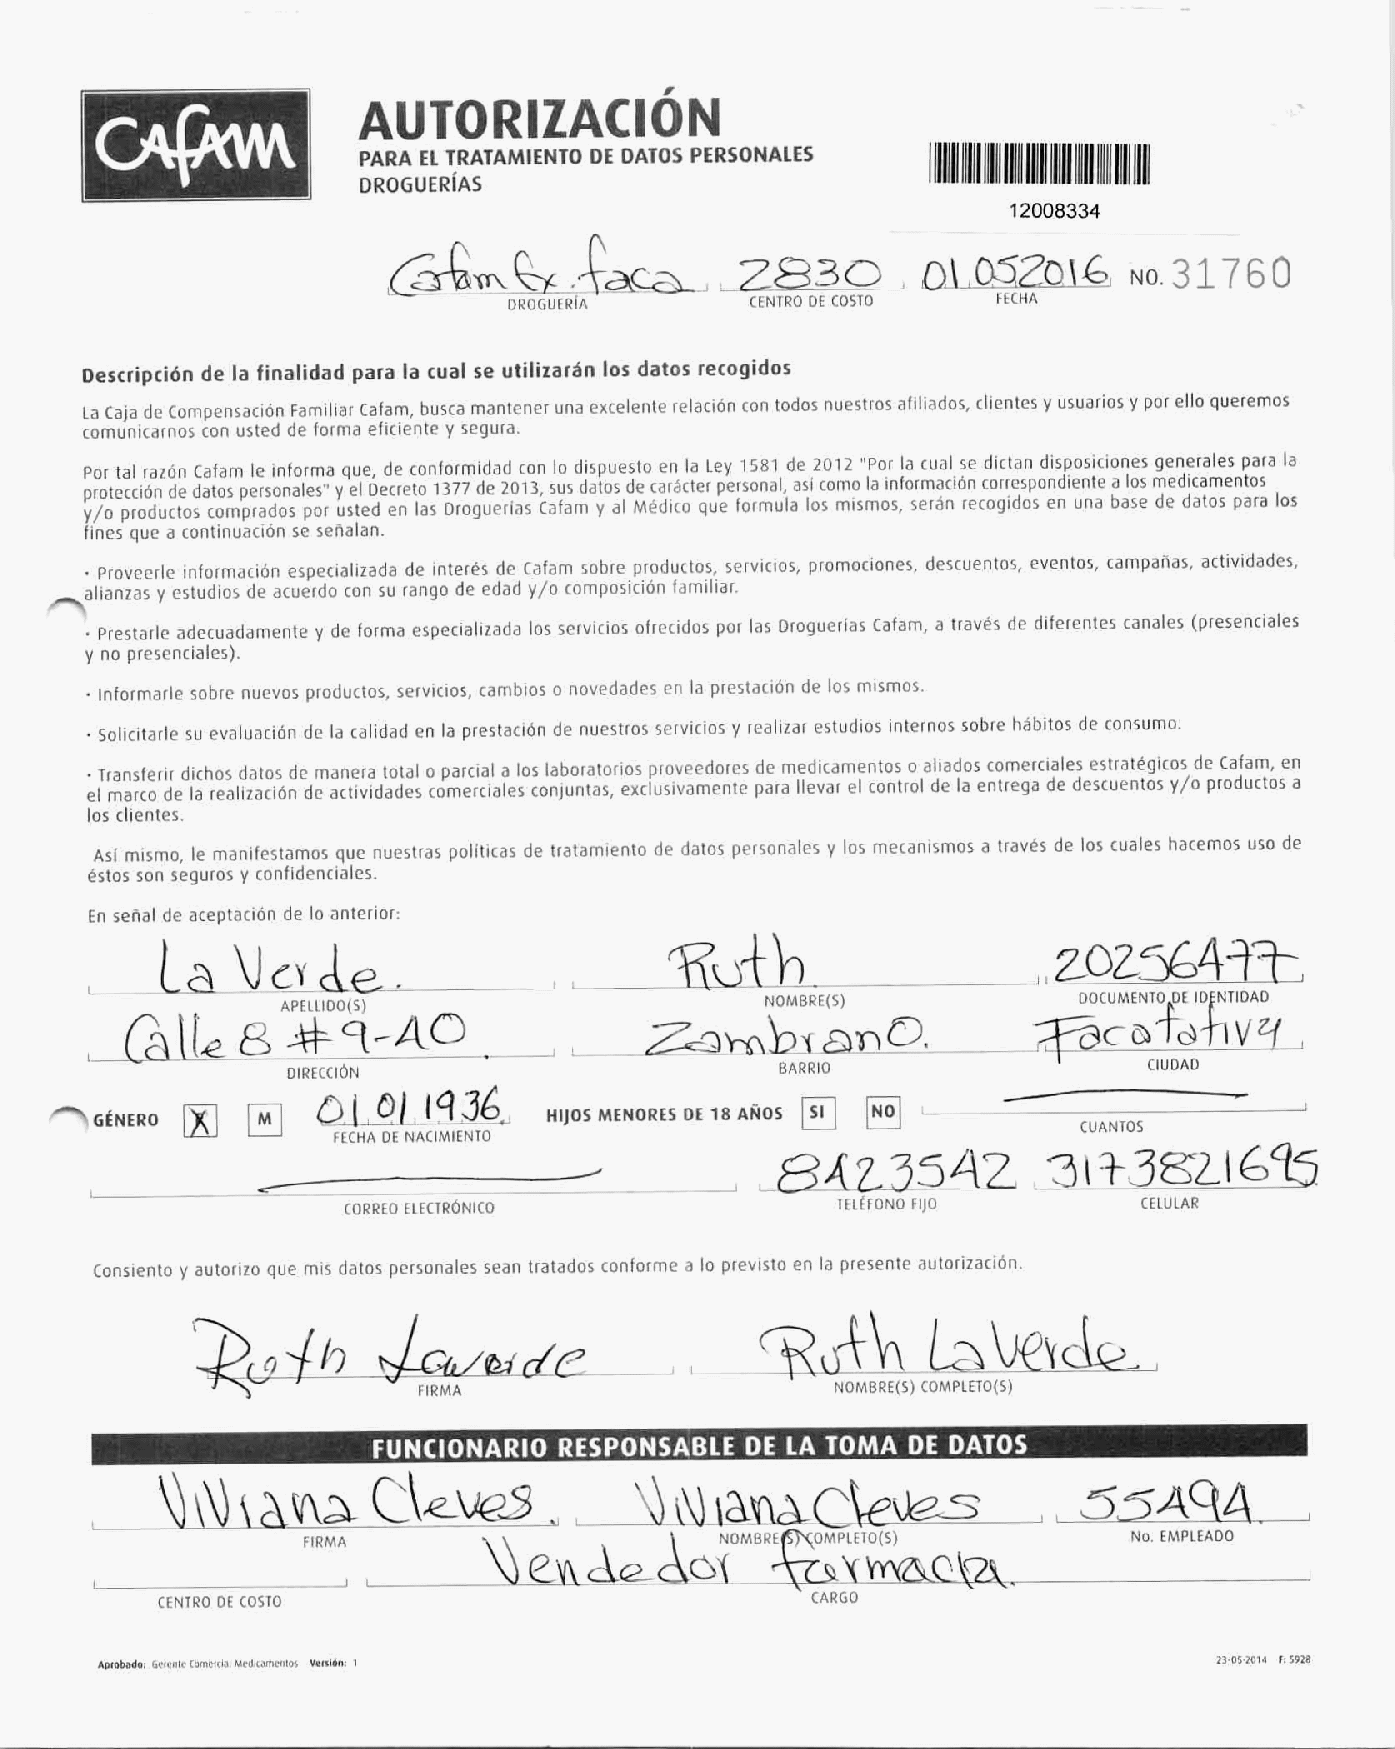 Cafam
AUTORIZACIÓN
PARA EL TRATAMIENTO DE DATOS PERSONALES
DROGUERÍAS
12008334
Cafam Ex. faca 2830 01 05 2016 NO. 31760
DROGUERÍA CENTRO DE COSTO FECHA
Descripción de la finalidad para la cual se utilizarán los datos recogidos
La Caja de Compensación Familiar Cafam, busca mantener una excelente relación con todos nuestros afiliados, clientes y usuarios y por ello queremos
comunicarnos con usted de forma eficiente y segura.
Por tal razón Cafam le informa que, de conformidad con lo dispuesto en la Ley 1581 de 2012 "Por la cual se dictan disposiciones generales para la
protección de datos personales" y el Decreto 1377 de 2013, sus datos de carácter personal, así como la información correspondiente a los medicamentos
y/o productos comprados por usted en las Droguerías Cafam y al Médico que formula los mismos, serán recogidos en una base de datos para los
fines que a continuación se señalan.
· Proveerle información especializada de interés de Cafam sobre productos, servicios, promociones, descuentos, eventos, campañas, actividades,
alianzas y estudios de acuerdo con su rango de edad y/o composición familiar.
· Prestarle adecuadamente y de forma especializada los servicios ofrecidos por las Droguerías Cafam, a través de diferentes canales (presenciales
y no presenciales).
· Informarle sobre nuevos productos, servicios, cambios o novedades en la prestación de los mismos.
· Solicitarle su evaluación de la calidad en la prestación de nuestros servicios y realizar estudios internos sobre hábitos de consumo.
· Transferir dichos datos de manera total o parcial a los laboratorios proveedores de medicamentos o aliados comerciales estratégicos de Cafam, en
el marco de la realización de actividades comerciales conjuntas, exclusivamente para llevar el control de la entrega de descuentos y/o productos a
los clientes.
Así mismo, le manifestamos que nuestras políticas de tratamiento de datos personales y los mecanismos a través de los cuales hacemos uso de
éstos son seguros y confidenciales.
En señal de aceptación de lo anterior:
La Verde. Ruth 20256477
APELLIDO(S) NOMBRE(S) DOCUMENTO DE IDENTIDAD
Calle 8 # 9-40 Zambrano. Facatativa
DIRECCIÓN BARRIO CIUDAD
GÉNERO X M 01 01 1936 HIJOS MENORES DE 18 AÑOS SI NO
FECHA DE NACIMIENTO CUANTOS
8423542 3173821695
CORREO ELECTRÓNICO TELÉFONO FIJO CELULAR
Consiento y autorizo que mis datos personales sean tratados conforme a lo previsto en la presente autorización.
Ruth Laverde Ruth La Verde.
FIRMA NOMBRE(S) COMPLETO(S)
FUNCIONARIO RESPONSABLE DE LA TOMA DE DATOS
Viviana Cleves. Viviana Cleves 55494
FIRMA NOMBRE(S) COMPLETO(S) No. EMPLEADO
Vendedor farmacia.
CENTRO DE COSTO CARGO
Aprobado: Gerente Comercial Medicamentos Versión: 1 23-05-2014 F: 5928